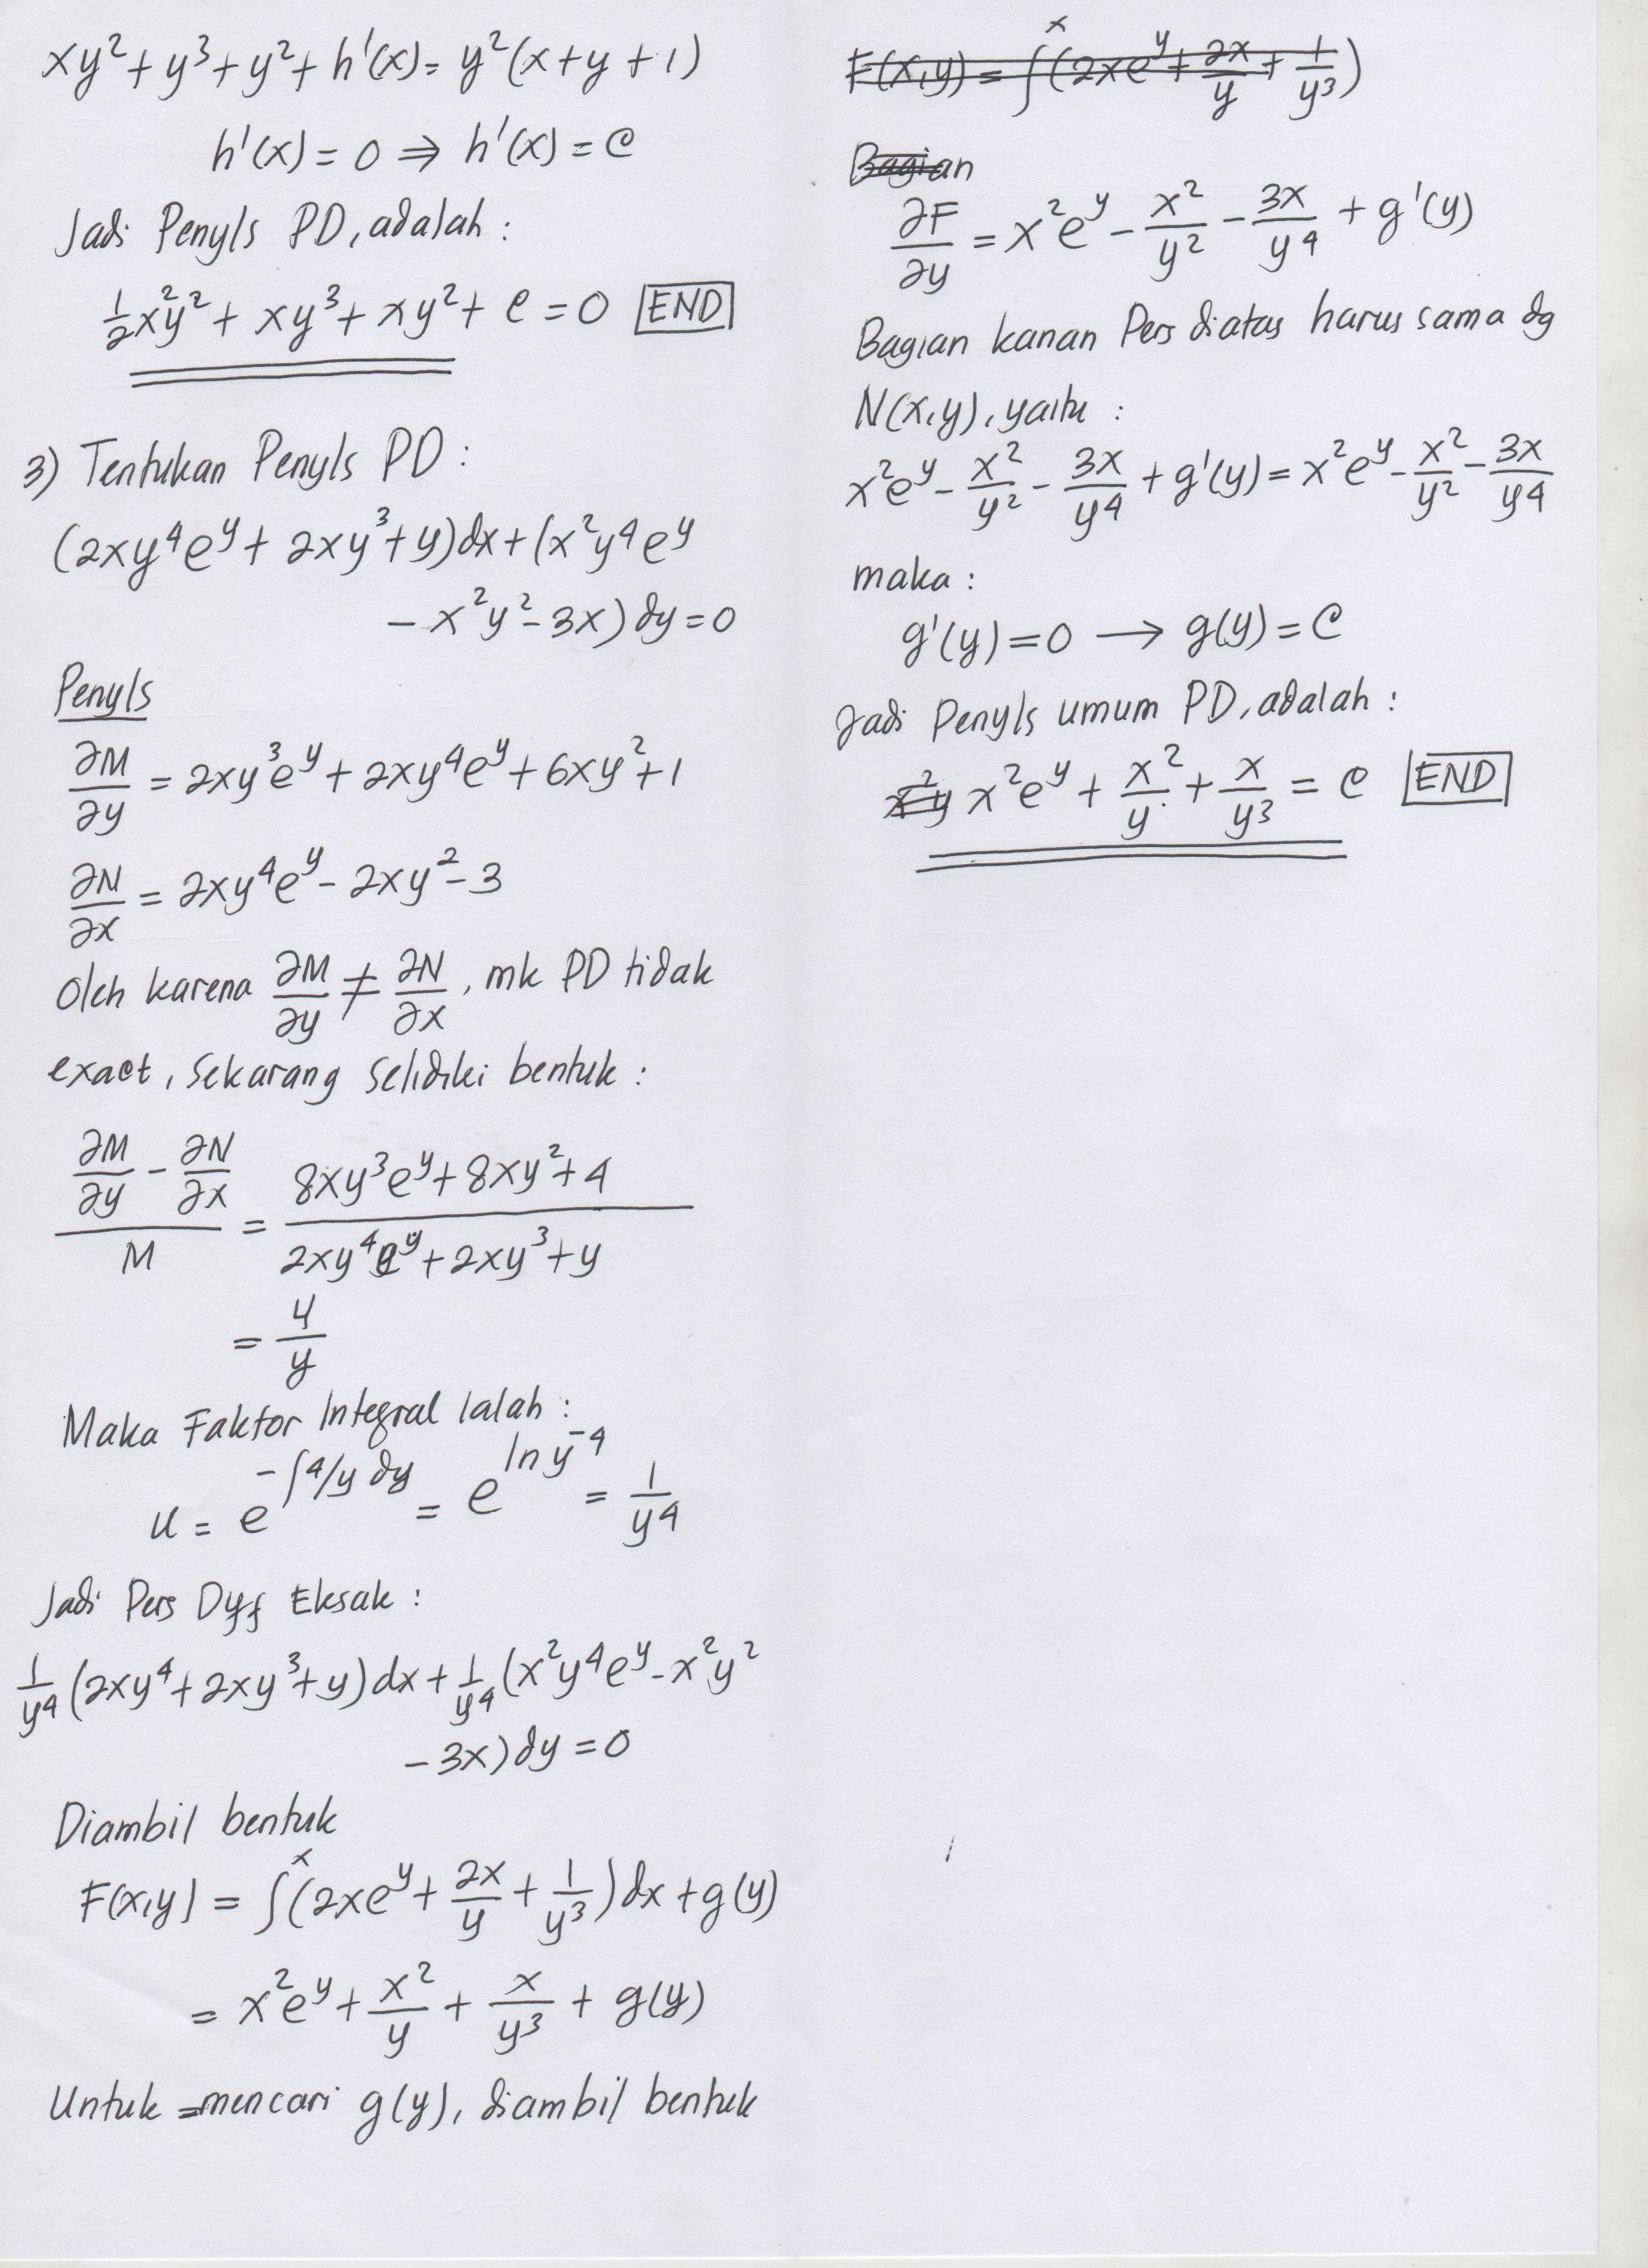 xy²+y³+y²+h'(x)=y²(x+y+1)
h'(x)=0 ⇒ h'(x)=c
Jadi Penyls PD, adalah :
½x²y²+xy³+xy²+c=0 END
3) Tentukan Penyls PD :
(2xy⁴e^y+2xy³+y)dx+(x²y⁴e^y
-x²y²-3x)dy=0
Penyls
∂M/∂y = 2xy³e^y+2xy⁴e^y+6xy²+1
∂N/∂x = 2xy⁴e^y-2xy²-3
Oleh karena ∂M/∂y ≠ ∂N/∂x, mk PD tidak
exact, Sekarang Selidiki bentuk :
(∂M/∂y - ∂N/∂x)/M = (8xy³e^y+8xy²+4)/(2xy⁴e^y+2xy³+y)
= 4/y
Maka Faktor Integral Ialah :
u = e^(-∫4/y dy) = e^(ln y⁻⁴) = 1/y⁴
Jadi Pers Dyf Eksak :
1/y⁴(2xy⁴+2xy³+y)dx+1/y⁴(x²y⁴e^y-x²y²
-3x)dy=0
Diambil bentuk
F(x,y) = ∫^x(2xe^y+2x/y+1/y³)dx+g(y)
= x²e^y+x²/y+x/y³+g(y)
Untuk =mencari g(y), diambil bentuk
F(x,y) = ∫^x(2xe^y+2x/y+1/y³)
Bagian
∂F/∂y = x²e^y-x²/y²-3x/y⁴+g'(y)
Bagian kanan Pers diatas harus sama dg
N(x,y), yaitu :
x²e^y-x²/y²-3x/y⁴+g'(y)=x²e^y-x²/y²-3x/y⁴
maka :
g'(y)=0 → g(y)=C
Jadi Penyls umum PD, adalah :
x²y x²e^y+x²/y+x/y³=c END